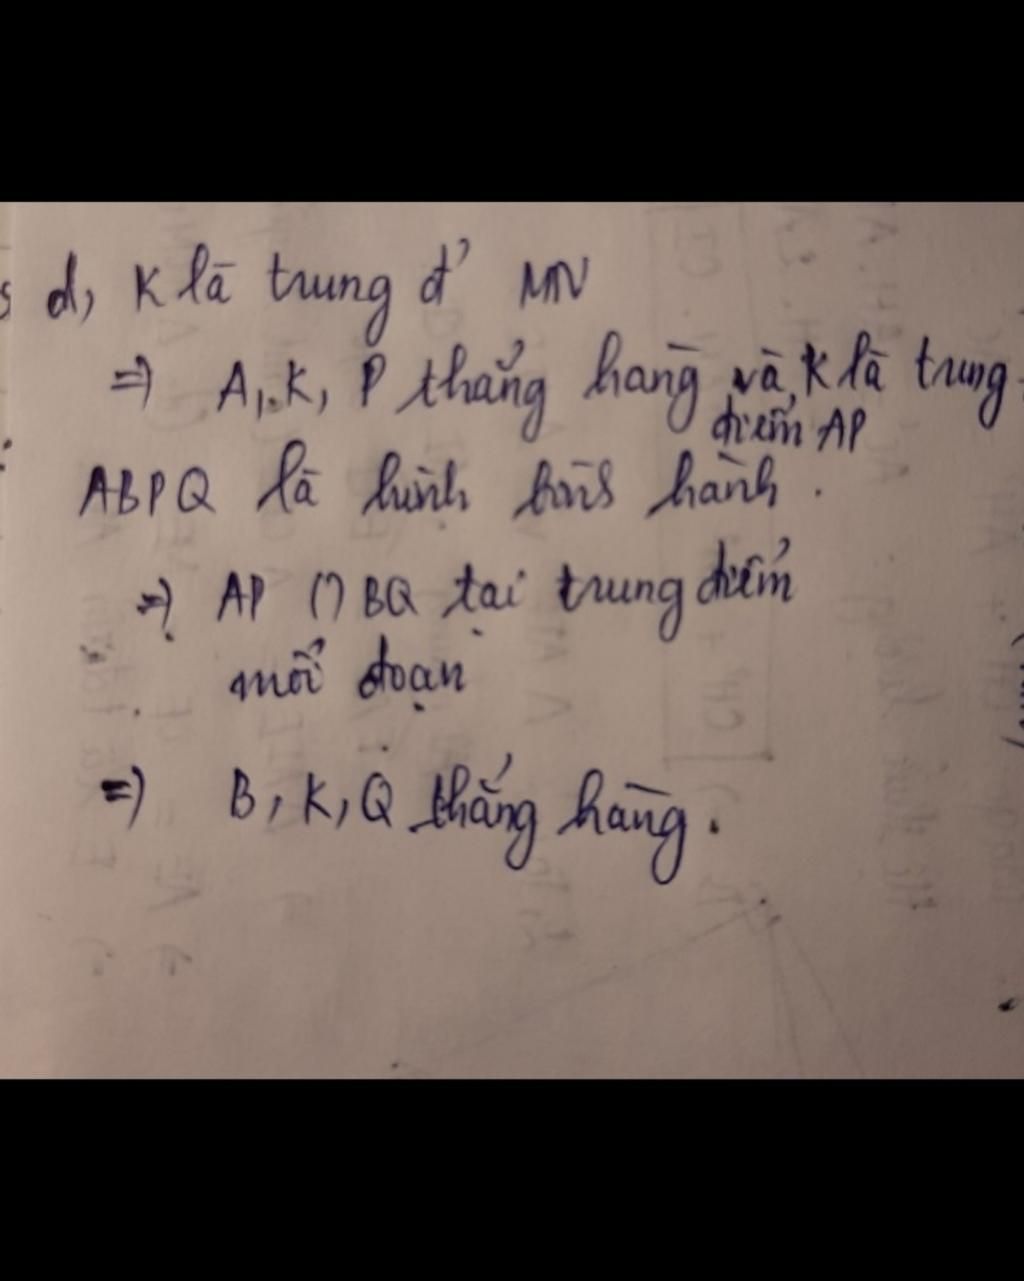 d, K là trung đ' MN
=> A, K, P thẳng hàng và K là trung
điểm AP
ABPQ là hình bình hành.
=> AP ∩ BQ tại trung điểm
mỗi đoạn
=> B, K, Q thẳng hàng.